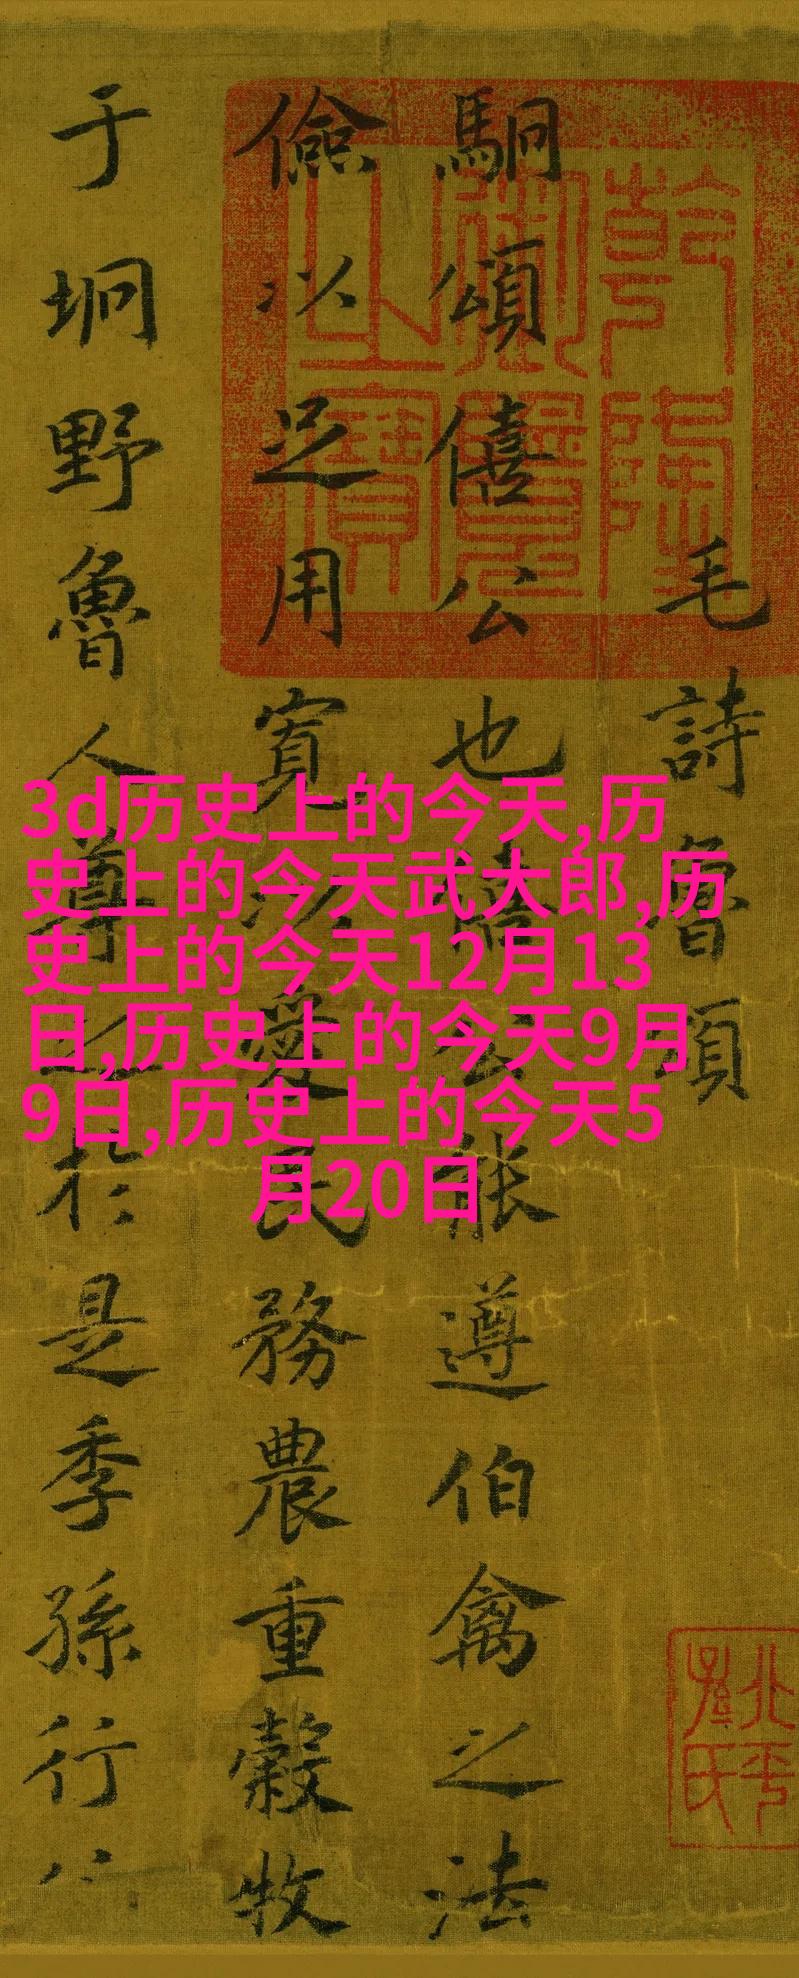 毛詩魯頌
駉頌僖公也僖公能遵伯禽之法
儉以足用寬以愛民務農重穀牧
于坰野魯人尊之於是季孫行
乾隆
御覽
之寶
3d历史上的今天,历
史上的今天武大郎,历
史上的今天12月13
日,历史上的今天9月
9日,历史上的今天5
月20日
北平
孫氏